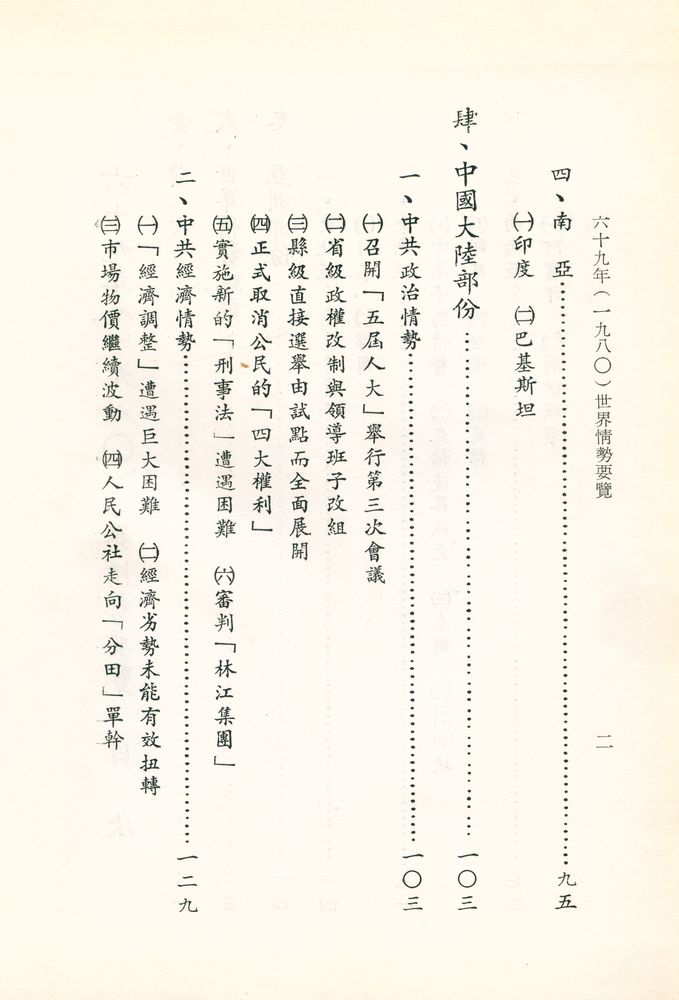 六十九年(一九八〇)世界情勢要覽
二
四、南亞……九五
㈠印度 ㈡巴基斯坦
肆、中國大陸部份……一〇三
一、中共政治情勢……一〇三
㈠召開「五屆人大」舉行第三次會議
㈡省級政權改制與領導班子改組
㈢縣級直接選舉由試點而全面展開
㈣正式取消公民的「四大權利」
㈤實施新的「刑事法」遭遇困難 ㈥審判「林江集團」
二、中共經濟情勢……一二九
㈠「經濟調整」遭遇巨大困難 ㈡經濟劣勢未能有效扭轉
㈢市場物價繼續波動 ㈣人民公社走向「分田」單幹